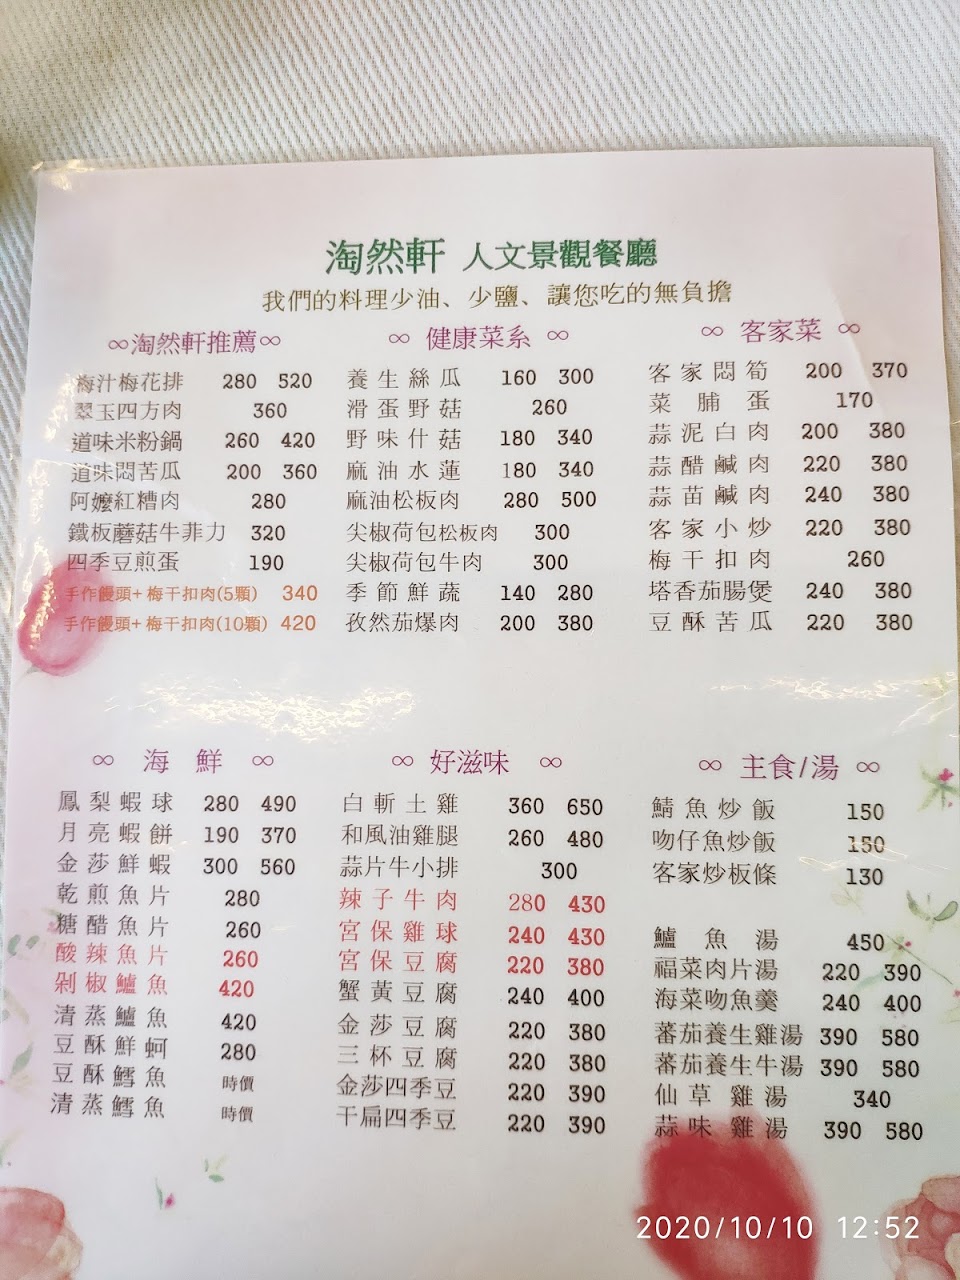 淘然軒 人文景觀餐廳
我們的料理少油、少鹽、讓您吃的無負擔
∞淘然軒推薦∞
梅汁梅花排 280 520
翠玉四方肉 360
道味米粉鍋 260 420
道味悶苦瓜 200 360
阿嬤紅糟肉 280
鐵板蘑菇牛菲力 320
四季豆煎蛋 190
手作饅頭+梅干扣肉(5顆) 340
手作饅頭+梅干扣肉(10顆) 420
∞ 健康菜系 ∞
養生絲瓜 160 300
滑蛋野菇 260
野味什菇 180 340
麻油水蓮 180 340
麻油松板肉 280 500
尖椒荷包松板肉 300
尖椒荷包牛肉 300
季節鮮蔬 140 280
孜然茄爆肉 200 380
∞ 客家菜 ∞
客家悶筍 200 370
菜脯蛋 170
蒜泥白肉 200 380
蒜醋鹹肉 220 380
蒜苗鹹肉 240 380
客家小炒 220 380
梅干扣肉 260
塔香茄腸煲 240 380
豆酥苦瓜 220 380
∞ 海鮮 ∞
鳳梨蝦球 280 490
月亮蝦餅 190 370
金莎鮮蝦 300 560
乾煎魚片 280
糖醋魚片 260
酸辣魚片 260
剁椒鱸魚 420
清蒸鱸魚 420
豆酥鮮蚵 280
豆酥鱈魚 時價
清蒸鱈魚 時價
∞ 好滋味 ∞
白斬土雞 360 650
和風油雞腿 260 480
蒜片牛小排 300
辣子牛肉 280 430
宮保雞球 240 430
宮保豆腐 220 380
蟹黃豆腐 240 400
金莎豆腐 220 380
三杯豆腐 220 380
金莎四季豆 220 390
干扁四季豆 220 390
∞ 主食/湯 ∞
鯖魚炒飯 150
吻仔魚炒飯 150
客家炒板條 130
鱸魚湯 450
福菜肉片湯 220 390
海菜吻魚羹 240 400
蕃茄養生雞湯 390 580
蕃茄養生牛湯 390 580
仙草雞湯 340
蒜味雞湯 390 580
2020/10/10 12:52